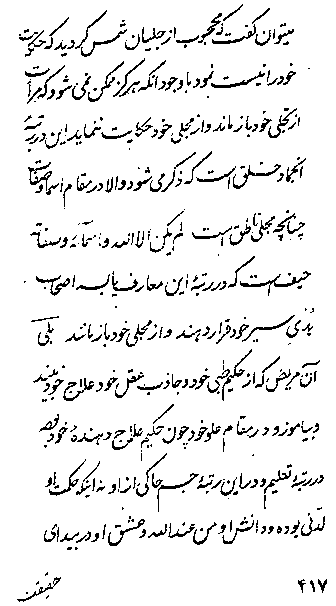 میتوان گفت که محجوب از جلیان شمس گردید که حکایت
خود را نیست نمود با وجود آنکه هرگز ممکن نمی شود که مرآت
از تجلی خود باز ماند و از مجلی خود حکایت ننماید این در رتبهٔ
انجماد خلق است که ذکر می شود والا در مقام اسماء و صفات
چنانچه مجلی ناطق است لم یکن الا الله و اسمائه و صفاته
حیف است که در رتبهٔ این معارف یا بسه اصحاب
بذی سیر خود قرار دهند و از مجلی خود باز مانند بلی
آن مریض که از حکیم طبی خود و جاذب عقل خود علاج خود بیند
و بیاموزد و در مقام علو خود چون حکیم علاج دهندهٔ خود بوده
در رتبهٔ تعلیم و در این رتبهٔ جسم حاکی از او نه اینکه حکمت او
لدنی بوده و دانش او من عند الله و عشق او در بیدای
۴۱۷
حقیقت